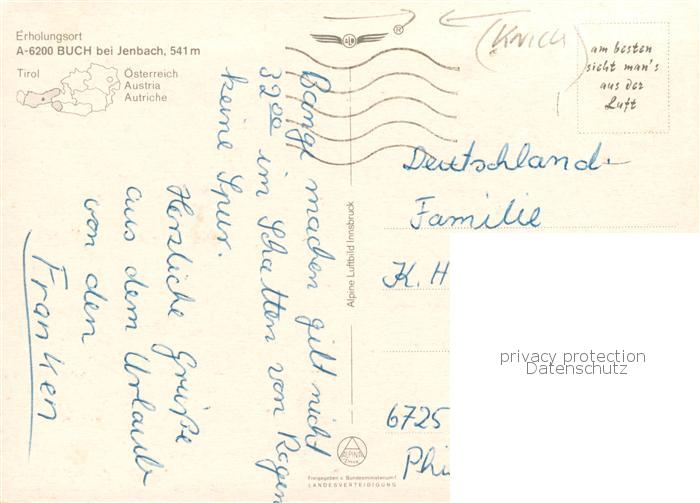 Erholungsort
A-6200 BUCH bei Jenbach, 541 m
Tirol
Österreich
Austria
Autriche
Bange machen gilt nicht
32.00 im Schatten von Regen
keine Spur.
Herzliche Grüße
aus dem Urlaub
von den
Franken
Alpine Luftbild Innsbruck
ALB
®
(Knick)
am besten
sieht man's
aus der
Luft
Deutschland
Familie
K. H
6725
Phi
ALPINA
Freigegeben v. Bundesministerium f.
LANDESVERTEIDIGUNG
privacy protection
Datenschutz